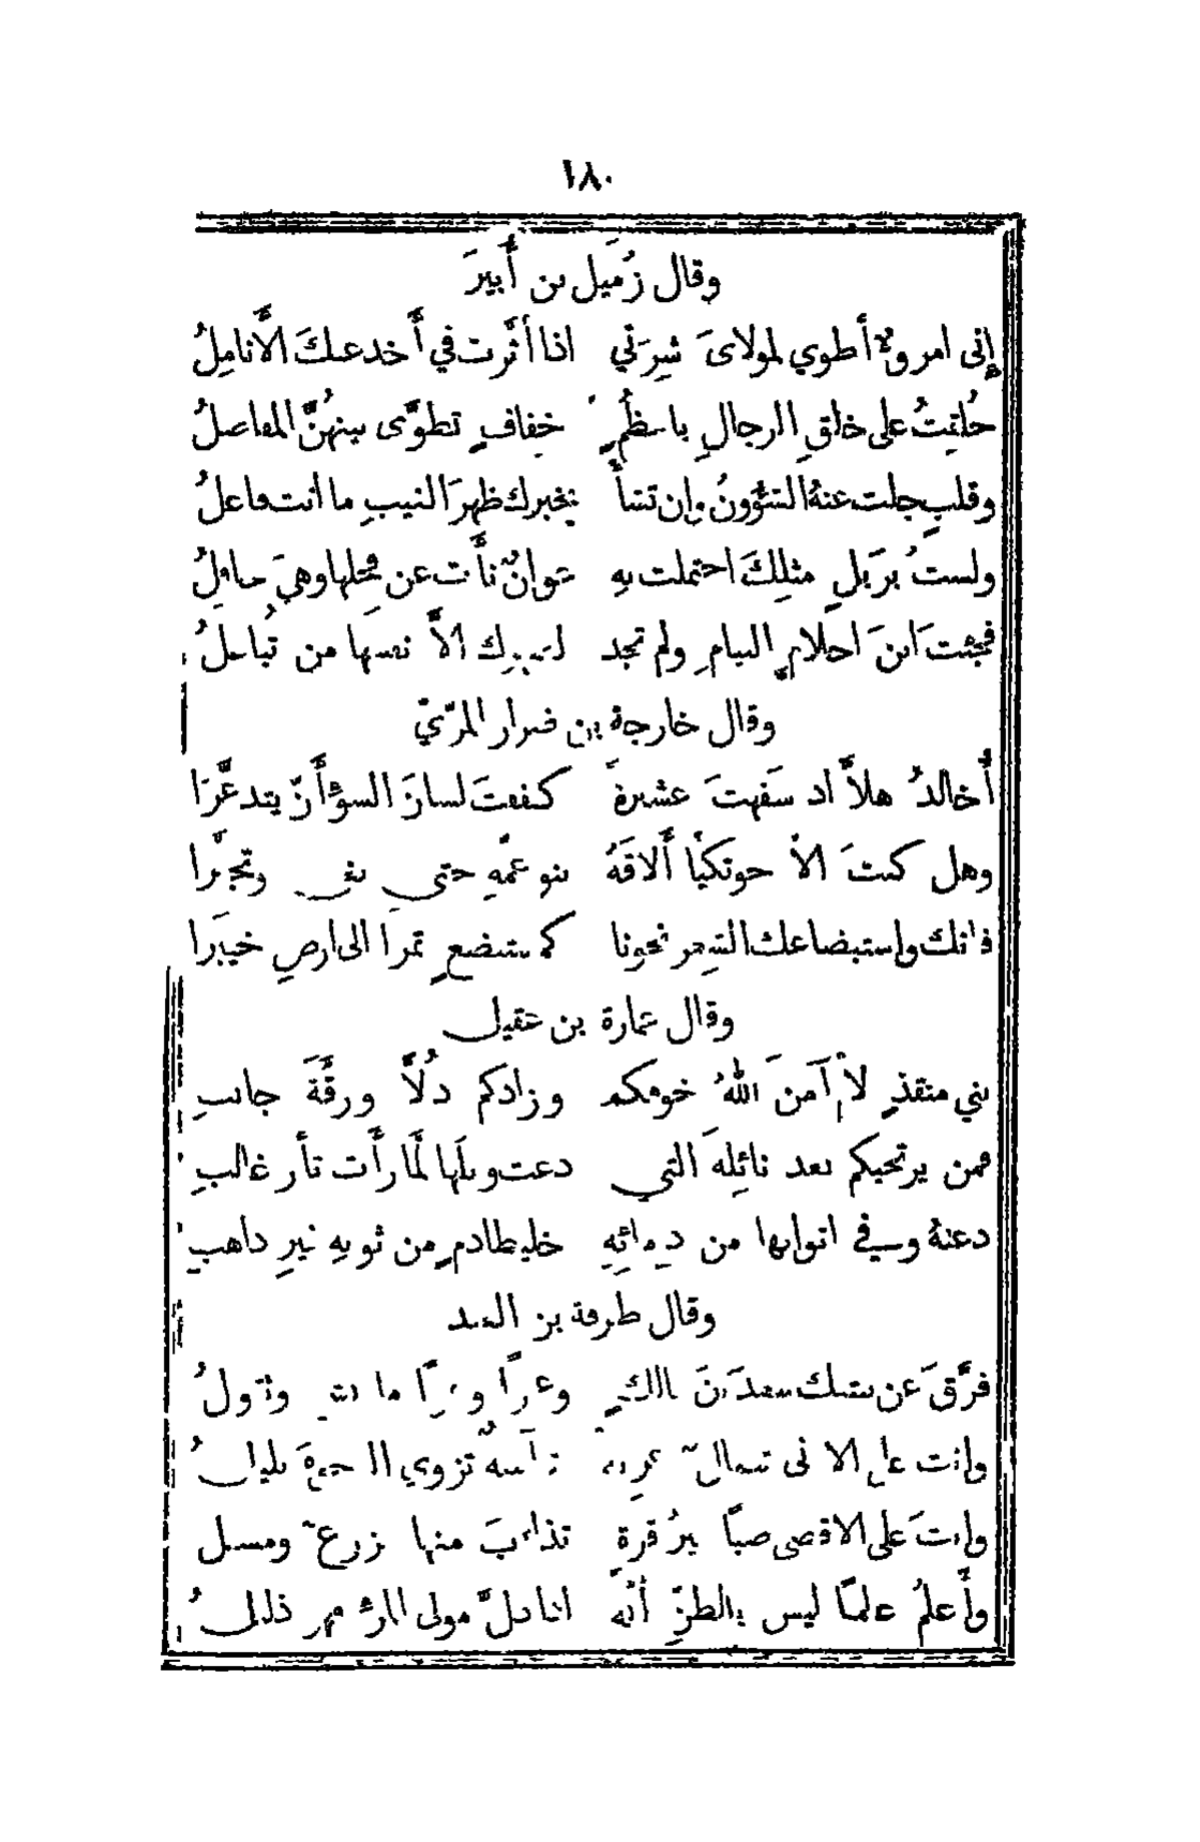 ١٨٠
وقال زُمَيل بن أَبيرَ
إني امروٌ أطوي لمولايَ شِرَتي اذا أثَّرت في أَخدعيك الأَنامِلُ
خُلقتُ على خلقِ الرجالِ باعظُمٍ خفافٍ تطوَّى بينهُنَّ المفاصلُ
وقلبٍ جلت عنهُ الشؤُونُ وإن تشأ يخبرك ظهرَ الغيبِ ما أنت فاعلُ
ولستُ برَبلٍ مثلِكَ احتملت بهِ عوانٌ نأَت عن فحلها وهيَ حافلُ
فجئتَ ابنَ احلامِ النيامِ ولم تجد لصهرك الاَّ نفسَها من تُباعلُ
وقال خارجة بن ضرار المرّيّ
أَخالدُ هلاَّ اذ سَفهتَ عشيرةً كففتَ لسانَ السوءِ أَنّ يتدعَّرَا
وهل كنتَ الاَّ حوتكيًّا أَلاقَهُ بنو عمّهِ حتى بغى وتجبَّرا
فانك واستبضاعك الشعر نحونا كمستبضعٍ تمرًا الى ارضِ خيبَرا
وقال عمارة بن عقيل
بني منقذٍ لا آمنَ اللهُ خوفكم وزادكم ذُلاًّ ورقَّةَ جانبِ
فمن يرتجيكم بعد نائِلةَ التي دعت ويلَها لمَّا رأَت ثأر غالبِ
دعتهُ وفي اثوابها من دِمائِهِ خليطا دمٍ من ثوبهِ غيرِ ذاهبِ
وقال طرفة بن العبد
فرَّقَ عن بيتيك سعدَ بنَ مالكٍ وعمرًا وعوفًا ما تشي وتقولُ
وانت على الادنى شمالٌ عريةٌ شآميَةٌ تزوي الوجوهَ بليلُ
وانتَ على الاقصى صبًا غيرُ قرةٍ تذاءَبَ منها مزرعٌ ومسيل
وأَعلمُ علمًا ليس بالظنِّ أنهُ اذا ذلَّ مولى المرءِ فهو ذليلُ